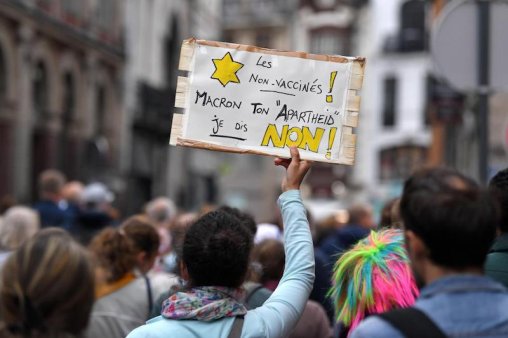 Les
Non-vaccinés !
Macron Ton "Apartheid"
je dis NON !